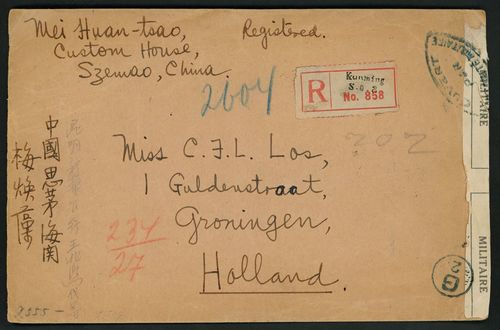 Mei Huan-tsao,
Custom House,
Szemao, China.
Registered.
2604
R
Kunming
S.O. 2
No. 858
OUVERT
PAR
MILITAIRE
Miss C.J.L. Los,
1 Guldenstraat,
Groningen,
Holland.
中國思茅海関
梅煥藻
234
27
202
MILITAIRE
G
2